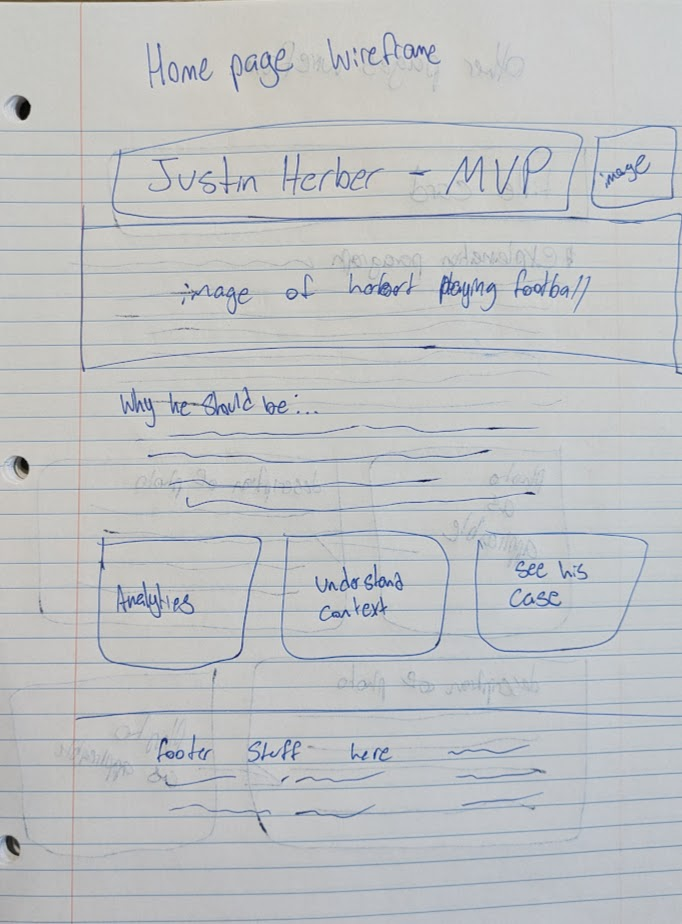 Home page Wireframe
Justin Herber - MVP
image
image of playing football
Why he should be:...
Analytics
Understand
context
see his
case
footer stuff here